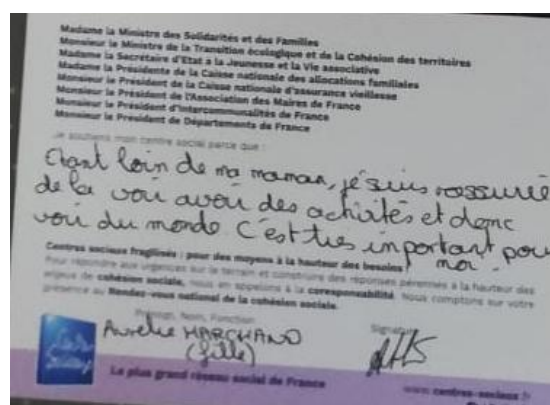 Madame la Ministre des Solidarités et des Familles
Monsieur le Ministre de la Transition écologique et de la Cohésion des territoires
Madame la Secrétaire d'Etat à la Jeunesse et la Vie associative
Madame la Présidente de la Caisse nationale des allocations familiales
Monsieur le Président de la Caisse nationale d'assurance vieillesse
Monsieur le Président de l'Association des Maires de France
Monsieur le Président d'Intercommunalités de France
Monsieur le Président de Départements de France
Je soutiens mon centre social parce que :
Étant loin de ma maman, je suis rassurée
de la voir avoir des activités et donc
voir du monde. C'est très important pour
moi.
Centres sociaux fragilisés : pour des moyens à la hauteur des besoins !
Pour répondre aux urgences sur le terrain et construire des réponses pérennes à la hauteur des
enjeux de cohésion sociale, nous en appelons à la coresponsabilité. Nous comptons sur votre
présence au Rendez-vous national de la cohésion sociale.
Prénom, Nom, Fonction
Signature
Aurelie MARCHAND
(fille)
Le plus grand réseau social de France
www.centres-sociaux.fr